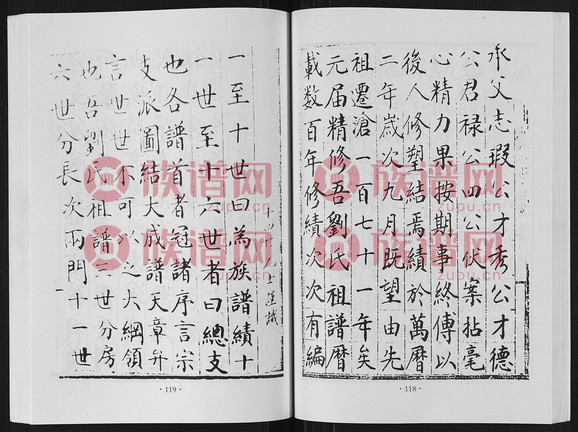 承父志瑕公才秀公才德
公君禄公四公伏案拈毫
心精力果按期事終傳以
後人修塑結焉績於萬曆
二年歲次九月既望由先
祖遷滄一百七十一年矣
元届精修吾劉氏祖譜曆
載数百年修績次次有編
一至十世曰為族譜績十
一世至十六世者曰總支
也各譜首者冠諸序言宗
支派圖結大成譜天章弁
言世世不可以之大綱領
也吾劉氏祖譜三世分房
六世分長次兩門十一世
·119·
·118·
族谱网
zupu.cn
族谱网
zupu.cn
族谱网
zupu.cn
族谱网
zupu.cn